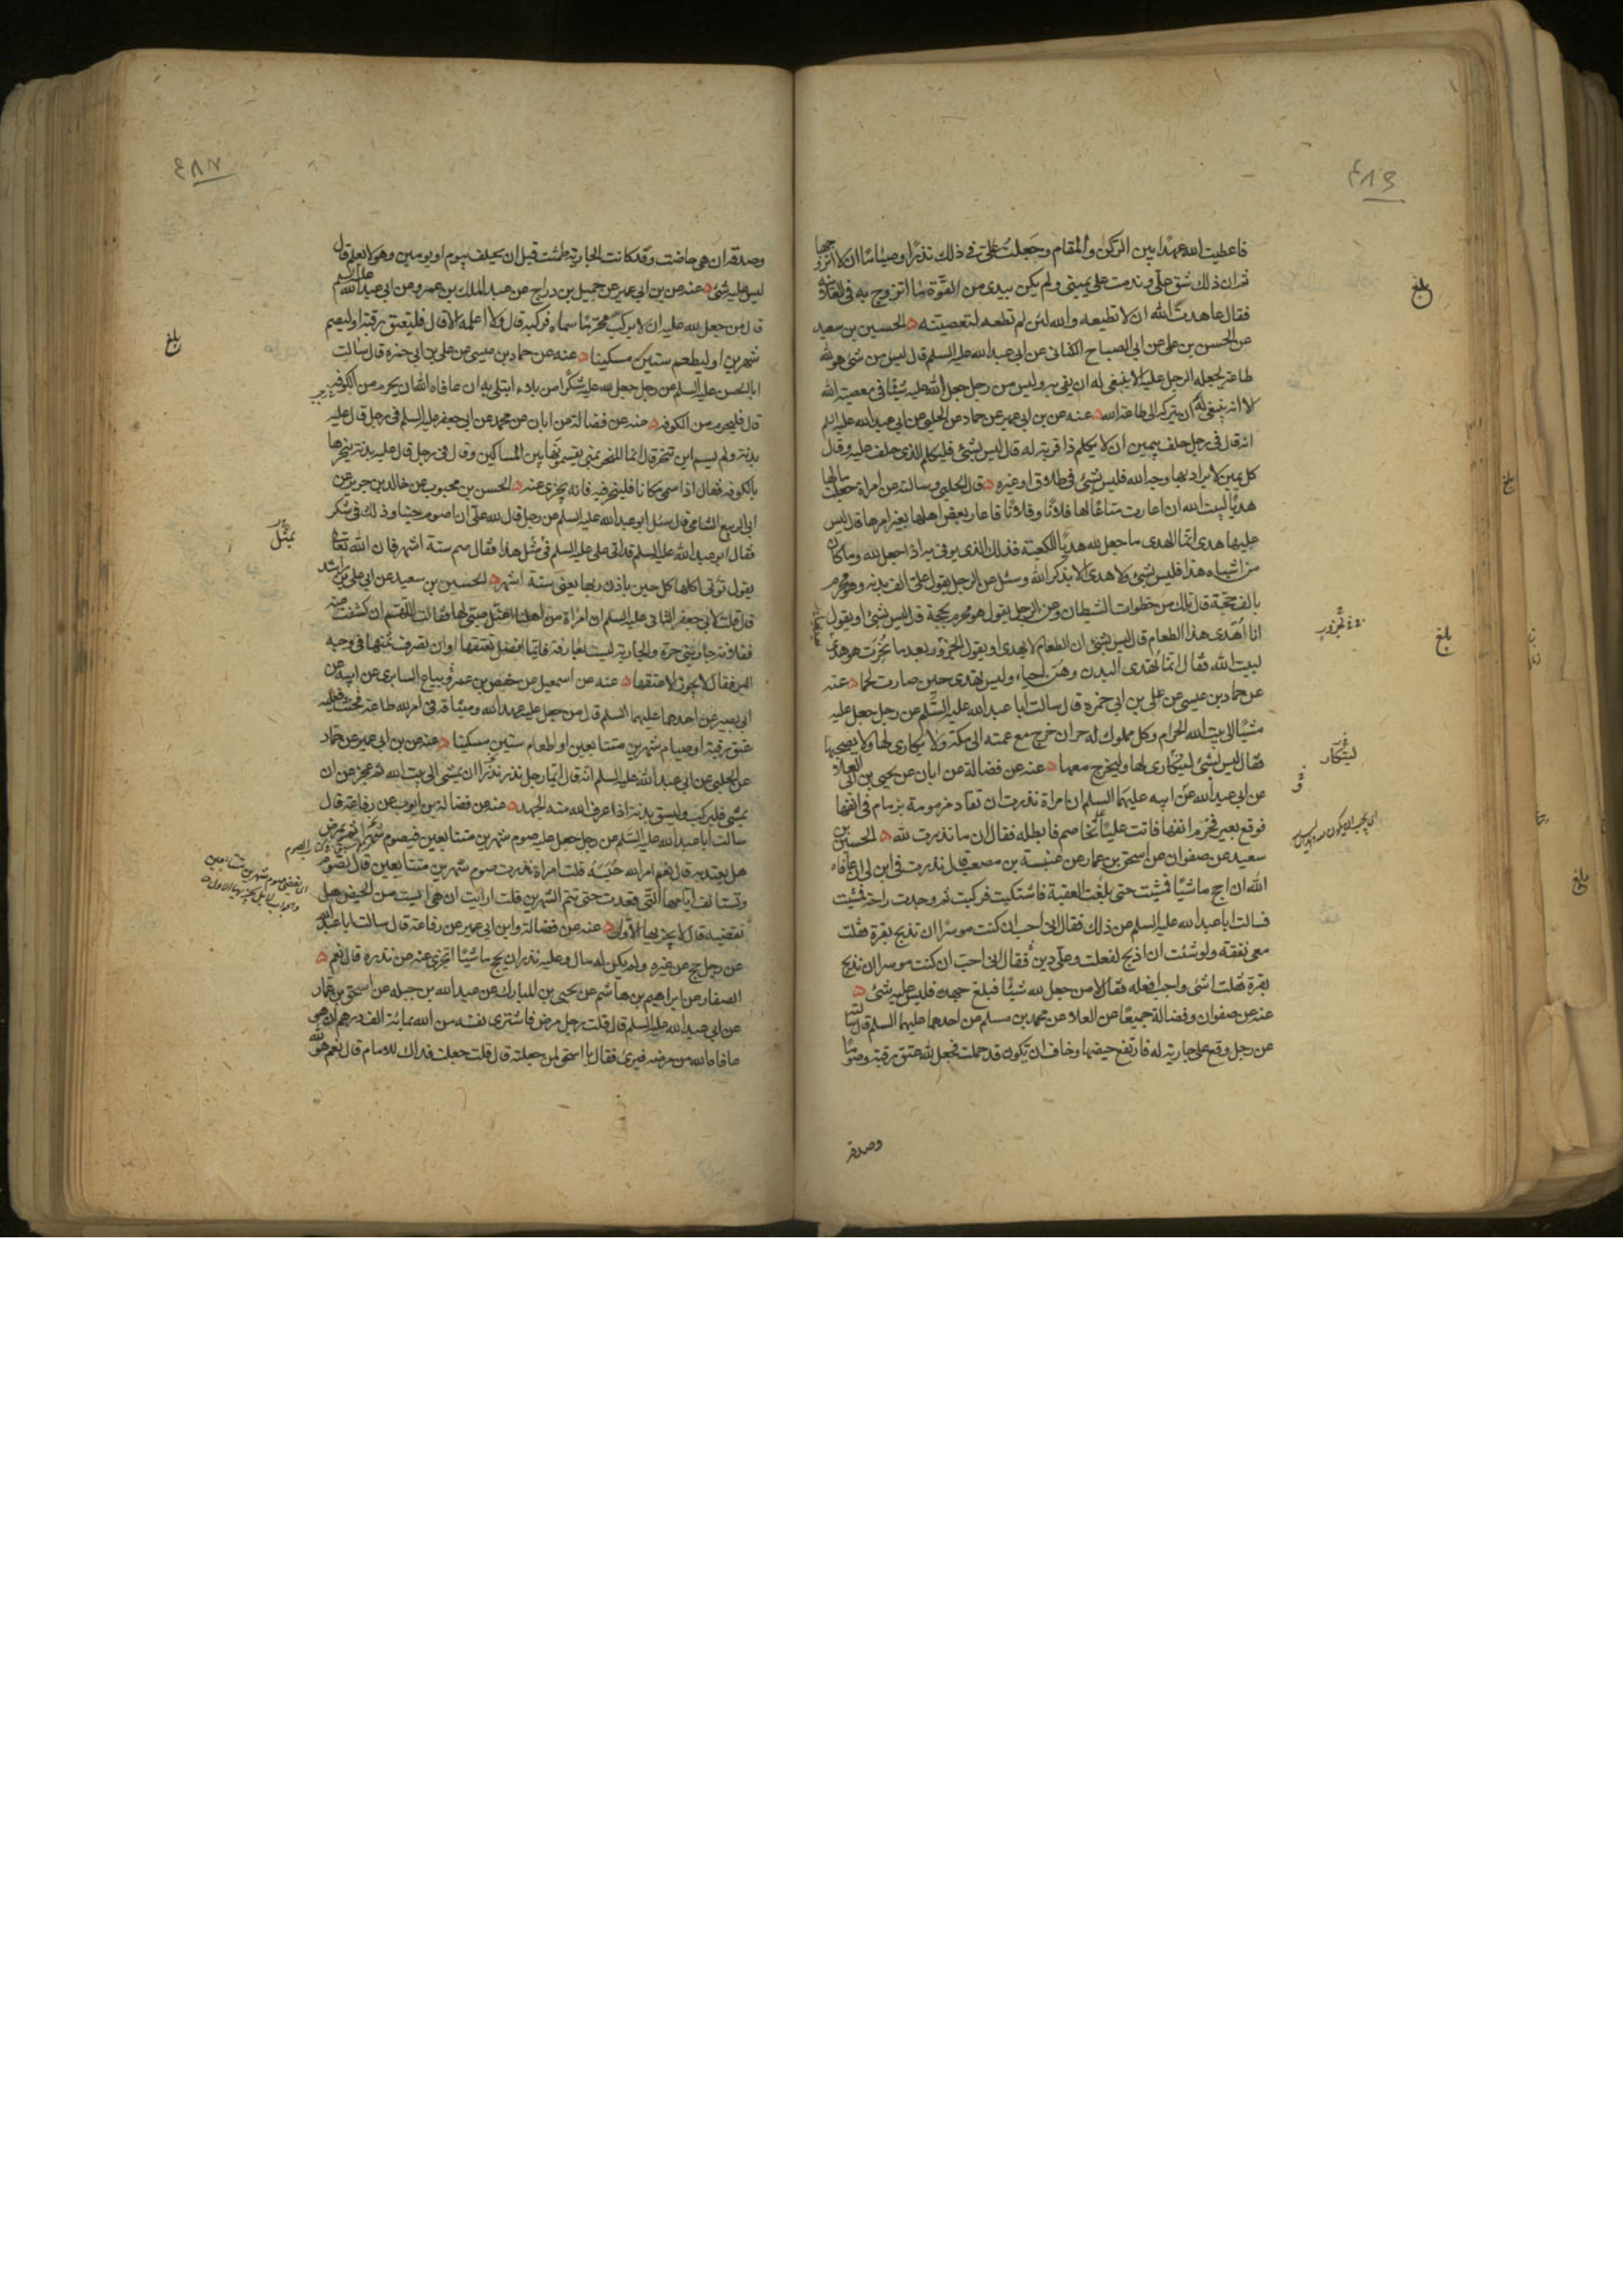 فاعطيت الله عهدا بين الركن والمقام وجعلت علي في ذلك نذرا وصياما ان لا اتزوجها
ثم ان ذلك شق علي وندمت على يميني ولم يكن بيدي من القوة ما اتزوج به في العلانية
فقال عاهدت الله ان لا تطيعه والله لئن لم تطعه لتعصينه الحسين بن سعيد
عن الحسن بن علي عن ابي الصباح الكناني عن ابي عبد الله عليه السلم قال ليس من شئ هو لله
طاعة يجعله الرجل عليه الا ينبغي له ان يفي به وليس من رجل جعل الله عليه شيئا في معصية الله
الا انه ينبغي له ان يتركه الى طاعة الله عنه عن بن ابي عمير عن حماد عن الحلبي عن ابي عبد الله عليه السلم
انه قال في رجل حلف بيمين ان لا يكلم ذا قرابة له قال ليس بشئ فليكلم الذي حلف عليه وقال
كل يمين لا يراد بها وجه الله فليس بشئ في طلاق او غيره قال الحلبي وسالته عن امراة جعلت مالها
هديا لبيت الله ان اعارت متاعا لها فلانا وفلانا فاعار بعض اهلها بغير امرها قال ليس
عليها هدى انما الهدى ما جعل لله هديا للكعبة فذلك الذي يوفى به اذا جعل لله وما كان
من اشباه هذا فليس بشئ ولا هدى لا يذكر الله وسئل عن الرجل يقول علي الف بدنة وهو محرم
بالف حجة قال تلك من خطوات الشيطان وعن الرجل يقول هو محرم بحجة قال ليس بشئ او يقول
انا اهدى هذا الطعام قال ليس بشئ ان الطعام لا يهدى او يقول الجزور بعد ما نحرت هو هدى
لبيت الله فقال انما تهدى البدن وهن احياء وليس تهدى حين صارت لحما عنه
عن حماد بن عيسى عن علي بن ابي حمزة قال سالت ابا عبد الله عليه السلم عن رجل جعل عليه
مشيا الى بيت الله الحرام وكل مملوك له حر ان خرج مع عمته الى مكة ولا يكارى لها ولا يصحبها
فقال ليس بشئ ليتكارى لها وليخرج معها عنه عن فضالة عن ابان عن يحيى بن ابي العلا
عن ابي عبد الله عن ابيه عليهما السلم ان امراة نذرت ان تقاد مزمومة بزمام في انفها
فوقع بعير فخرم انفها فاتت عليا تخاصم فابطله فقال ان ما نذرت لله الحسين بن
سعيد عن صفوان عن اسحق بن عمار عن عنبسة بن مصعب قال نذرت في ابن لي ان عافاه
الله ان احج ماشيا فمشيت حتى بلغت العقبة فاشتكيت فركبت ثم وجدت راحة فمشيت
فسالت ابا عبد الله عليه السلم عن ذلك فقال اني احب ان كنت موسرا ان تذبح بقرة فقلت
معي نفقة ولو شئت ان اذبح لفعلت وعلي دين فقال اني احب ان كنت موسرا ان تذبح
بقرة فقلت اشئ واجب افعله فقال لا من جعل لله شيئا فبلغ جهده فليس عليه شئ
عنه عن صفوان وفضالة جميعا عن العلا عن محمد بن مسلم عن احدهما عليهما السلم قال سالته
عن رجل وقع على جارية له فارتفع حيضها وخاف ان تكون قد حملت فجعل لله عتق رقبة وصوما
وصدقة
بلغ
بلغ
وصدقة ان هي حاضت وقد كانت الجارية طمثت قبل ان يحلف بيوم او يومين وهو لا يعلم قال
ليس عليه شئ عنه عن بن ابي عمير عن جميل بن دراج عن عبد الملك بن عمرو عن ابي عبد الله عليه السلم
قال من جعل لله عليه ان لا يركب محرما سماه فركبه قال ولا اعلمه الا قال فليعتق رقبة او ليصم
شهرين او ليطعم ستين مسكينا عنه عن حماد بن عيسى عن علي بن ابي حمزة قال سالت
ابا الحسن عليه السلم عن رجل جعل لله عليه شكرا من بلاء ابتلى به ان عافاه الله ان يحرم من الكوفة
قال فليحرم من الكوفة عنه عن فضالة عن ابان عن محمد عن ابي جعفر عليه السلم في رجل قال عليه
بدنة ولم يسم اين تنحر قال انما المنحر بمنى يقسمونها بين المساكين وقال في رجل قال عليه بدنة ينحرها
بالكوفة فقال اذا سمى مكانا فلينحر فيه فانه يجزى عنه الحسن بن محبوب عن خالد بن جرير عن
ابي الربيع الشامي قال سئل ابو عبد الله عليه السلم عن رجل قال لله علي ان اصوم حينا وذلك في شكر
فقال ابو عبد الله عليه السلم قد اتى علي عليه السلم في مثل هذا فقال صم ستة اشهر فان الله تعالى
يقول تؤتى اكلها كل حين باذن ربها يعني ستة اشهر الحسين بن سعيد عن ابي علي بن راشد
قال قلت لابي جعفر الثاني عليه السلم ان امراة من اهلنا اعتل صبي لها فقالت اللهم ان كشفت عنه
ففلانة جاريتي حرة والجارية ليست بعارفة فايما افضل تعتقها او ان تصرف ثمنها في وجه
البر فقال لا يجوز الا عتقها عنه عن اسمعيل عن حفص بن عمر وبياع السابري عن ابيه عن
ابي بصير عن احدهما عليهما السلم قال من جعل عليه عهد الله وميثاقه في امر لله طاعة فحنث فعليه
عتق رقبة او صيام شهرين متتابعين او اطعام ستين مسكينا عنه عن بن ابي عمير عن حماد
عن الحلبي عن ابي عبد الله عليه السلم انه قال ايما رجل نذر نذرا ان يمشي الى بيت الله ثم عجز عن ان
يمشي فليركب وليسق بدنة اذا عرف الله منه الجهد عنه عن فضالة بن ايوب عن رفاعة قال
سالت ابا عبد الله عليه السلم عن رجل جعل عليه صوم شهرين متتابعين فيصوم شهرا ثم يمرض
هل يعتد به قال نعم امر الله حبسه قلت امراة نذرت صوم شهرين متتابعين قال تصوم
وتستانف ايامها التي قعدت حتى تتم الشهرين قلت ارايت ان هي ايست من الحيض هل
تقضيه قال لا يجزيها الاول عنه عن فضالة وابن ابي عمير عن رفاعة قال سالت ابا عبد الله
عن رجل حج عن غيره ولم يكن له مال وعليه نذر ان يحج ماشيا اتجزى عنه من نذره قال نعم
الصفار عن ابراهيم بن هاشم عن يحيى بن المبارك عن عبد الله بن جبله عن اسحق بن عمار
عن ابي عبد الله عليه السلم قال قلت رجل مرض فاشترى نفسه من الله بمائة الف درهم ان هو
عافاه الله من مرضه فبرئ فقال يا اسحق لمن جعلته قال قلت جعلت فداك للامام قال نعم هو لله
بلغ